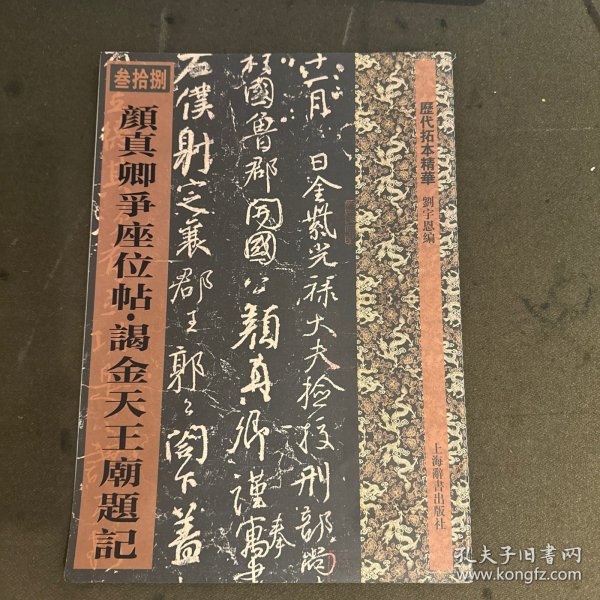 叁拾捌
顔真卿爭座位帖·謁金天王廟題記
十一月 日金紫光祿大夫檢校刑部尚
柱國魯郡開國公顏真卿謹奉寓書
右僕射定襄郡王郭公閤下蓋
歷代拓本精華
劉宇恩編
上海辭書出版社
孔夫子旧书网
www.kongfz.com